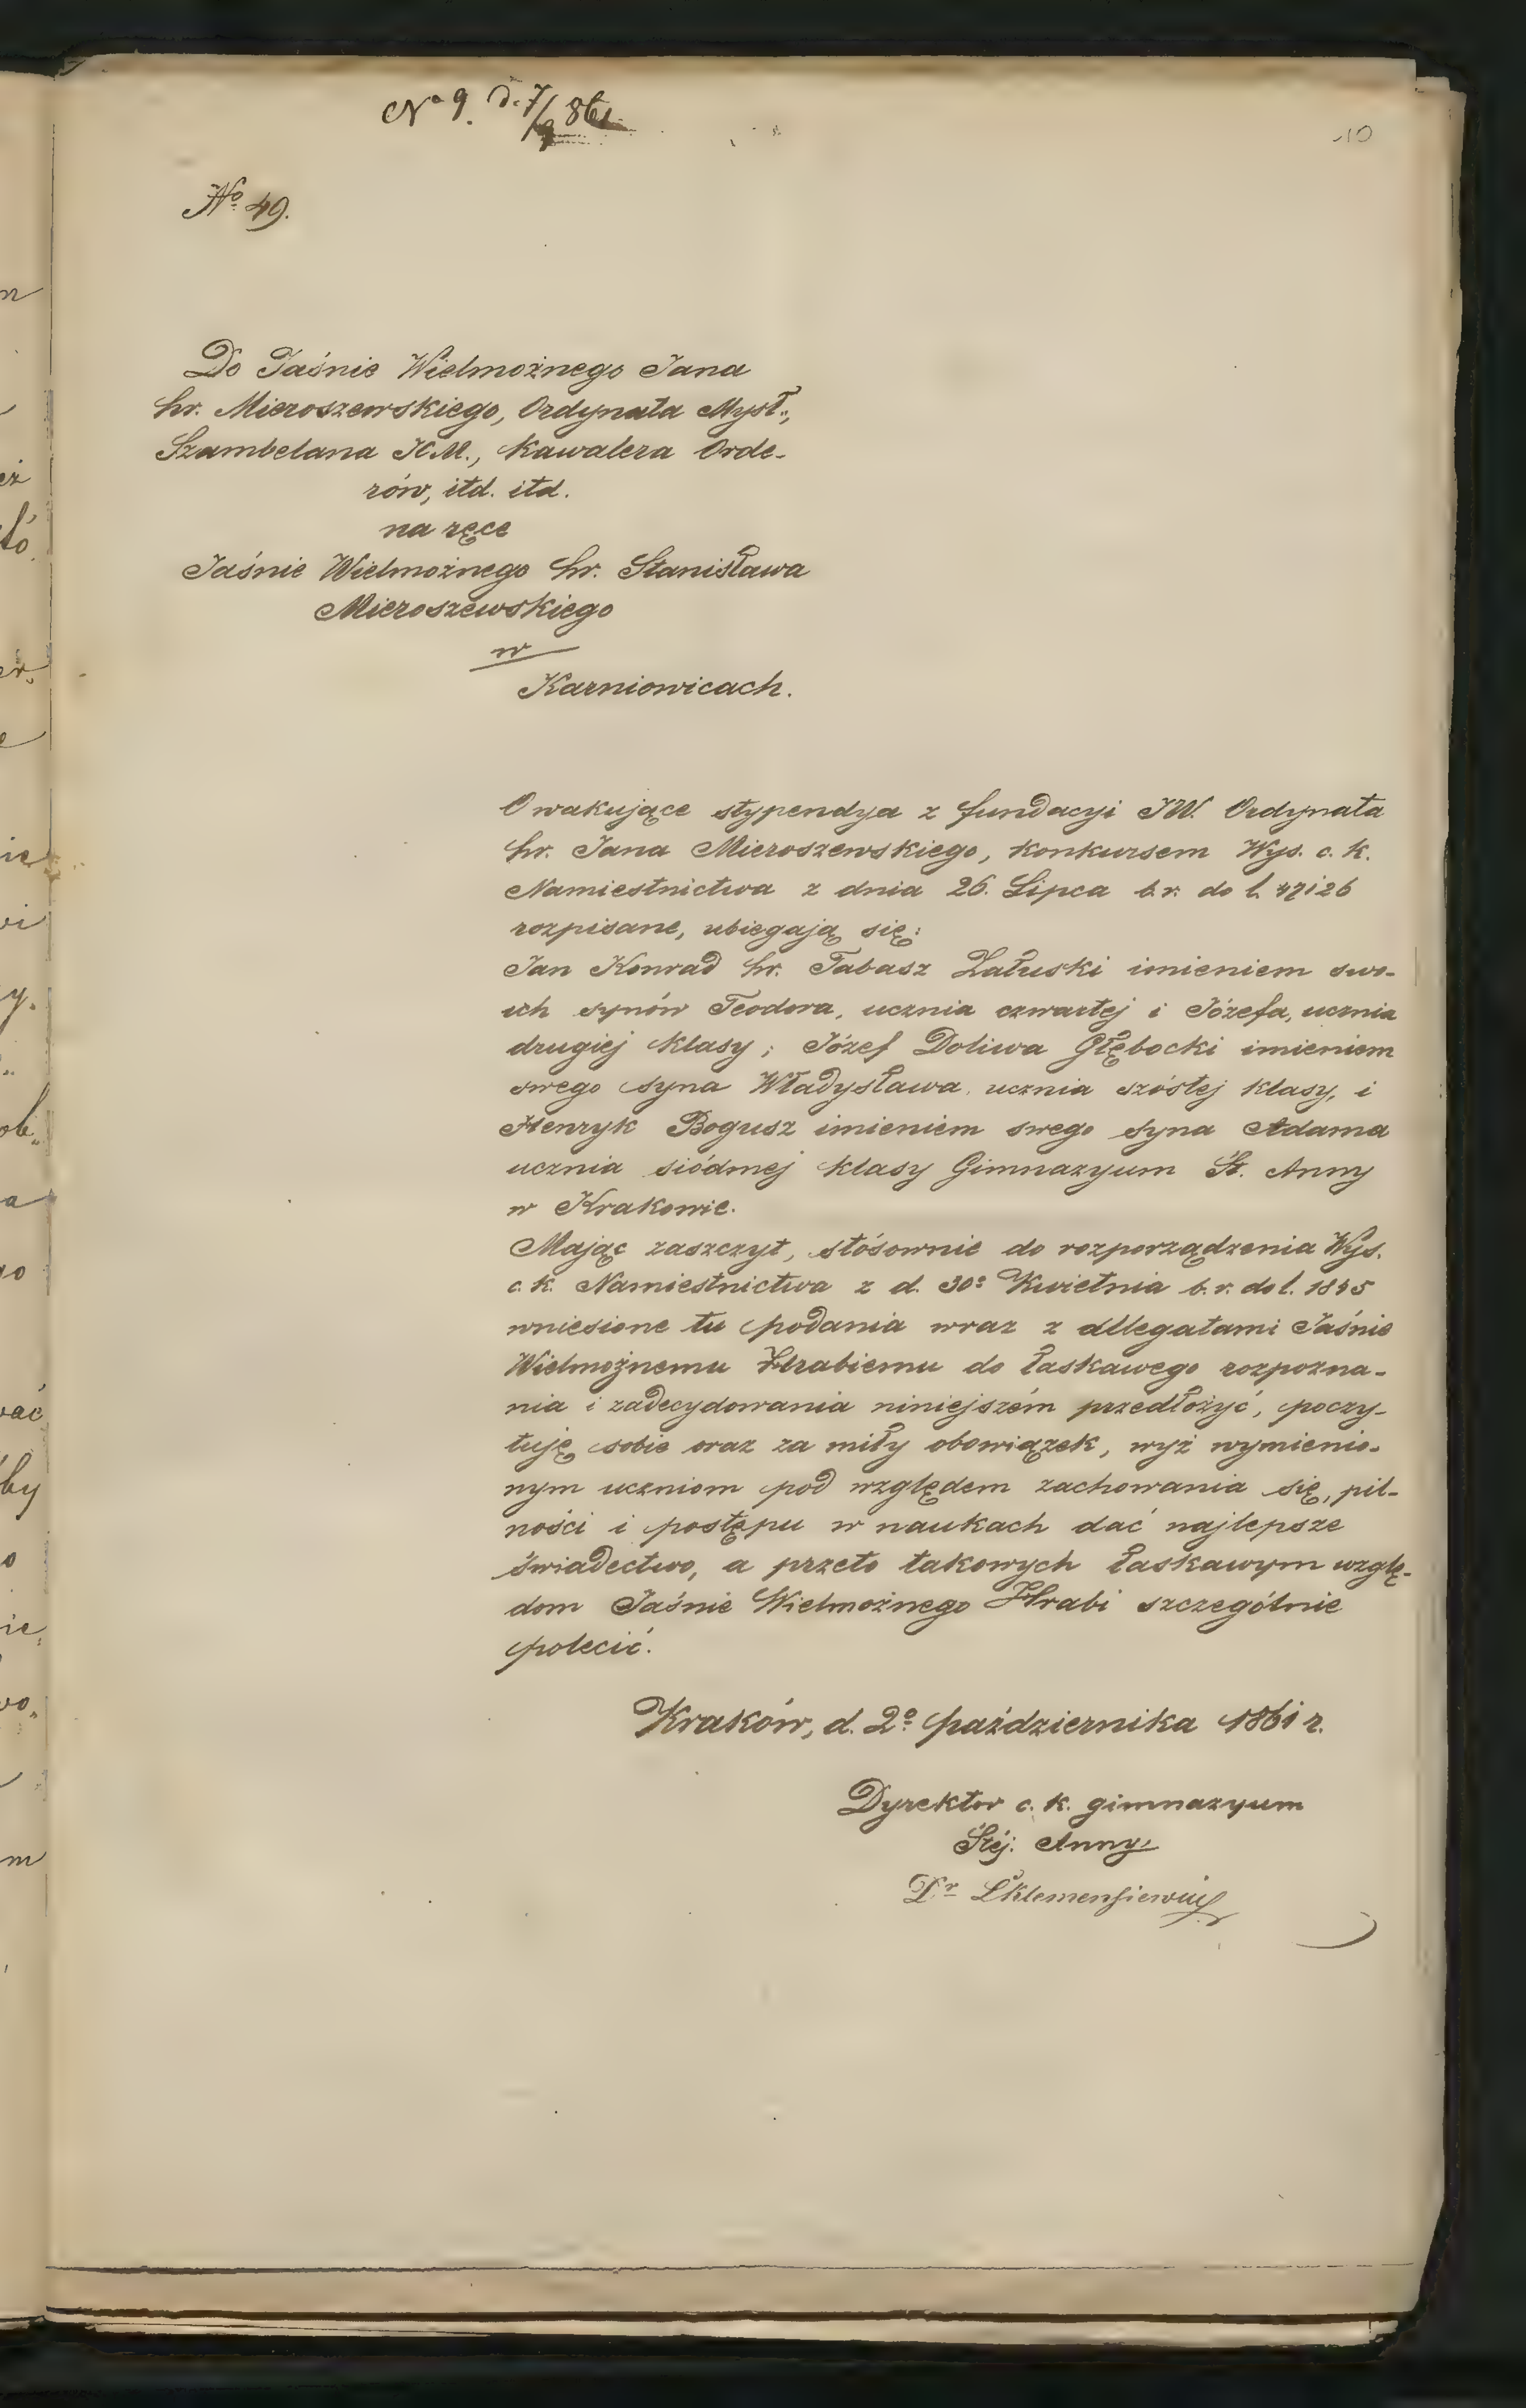 No 9. d. 7/9 861
10
No 49.
Do Jaśnie Wielmożnego Jana
hr. Mieroszewskiego, Ordynata Mysł.,
Szambelana K.M., Kawalera Orde-
rów, itd. itd.
na ręce
Jaśnie Wielmożnego hr. Stanisława
Mieroszewskiego
w
Karniowicach.
O wakujące stypendya z fundacyi JW. Ordynata
hr. Jana Mieroszewskiego, konkursem Wys. c. k.
Namiestnictwa z dnia 26. Lipca b. r. do l. 47126
rozpisane, ubiegają się:
Jan Konrad hr. Tabasz Załuski imieniem swo-
ich synów Teodora, ucznia czwartej i Józefa, ucznia
drugiej klasy; Józef Doliwa Głębocki imieniem
swego syna Władysława, ucznia szóstej klasy, i
Henryk Bogusz imieniem swego syna Adama
ucznia siódmej klasy Gimnazyum Śt. Anny
w Krakowie.
Mając zaszczyt, stósownie do rozporządzenia Wys.
c. k. Namiestnictwa z d. 30o Kwietnia b. r. do l. 1845
wniesione tu podania wraz z allegatami Jaśnie
Wielmożnemu Hrabiemu do łaskawego rozpozna-
nia i zadecydowania niniejszém przedłożyć, poczy-
tuję sobie oraz za miły obowiązek, wyż wymienio-
nym uczniom pod względem zachowania się, pil-
ności i postępu w naukach dać najlepsze
świadectwo, a przeto takowych łaskawym wzglę-
dom Jaśnie Wielmożnego Hrabi szczególnie
polecić.
Kraków, d. 2o października 1861 r.
Dyrektor c. k. gimnazyum
Śtéj. Anny
Dr Klemensiewicz